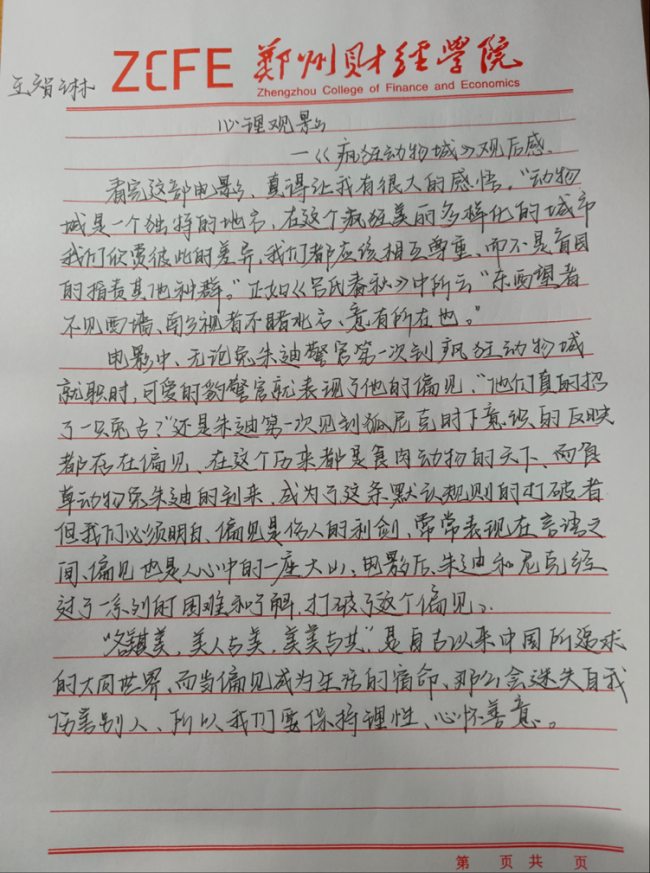 ZCFE 郑州财经学院
Zhengzhou College of Finance and Economics
王智琳
心理观影
—《疯狂动物城》观后感.
看完这部电影、真得让我有很大的感悟。“动物
城是一个独特的地方，在这个疯狂美丽多样化的城市
我们欣赏彼此的差异，我们都应该相互尊重、而不是盲目
的指责其他种群。”正如《吕氏春秋》中所云“东面望者
不见西墙、南乡视者不睹北方、意有所在也。”
电影中、无论兔朱迪警官第一次到疯狂动物城
就职时，可爱的豹警官就表现了他的偏见、“他们真的招
了一只兔子？”还是朱迪第一次见到狐尼克时下意识的反映
都存在偏见、在这个历来都是食肉动物的天下、而食
草动物兔朱迪的到来，成为了这条默认规则的打破者
但我们必须明白、偏见是伤人的利剑、常常表现在言语之
间、偏见也是人心中的一座大山、电影后、朱迪和尼克经
过了一系列的困难和了解，打破了这个偏见、
“各美其美，美人与美，美美与共”是自古以来中国所追求
的大同世界、而当偏见成为生活的宿命、那么会迷失自我
伤害别人、所以我们要保持理性、心怀善意。
第 页 共 页